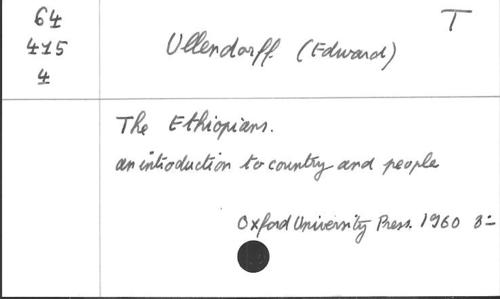 64
415
4
Ullendorff (Edward)
T
The Ethiopians.
an introduction to country and people
Oxford University Press. 1960 8=